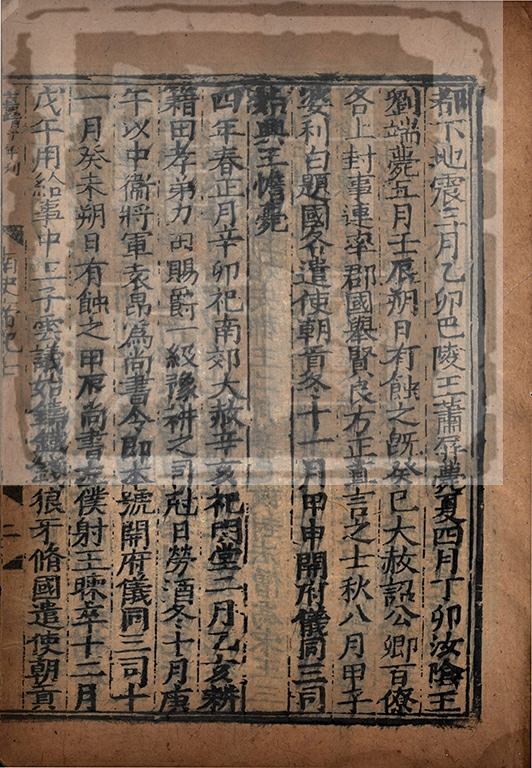 都下地震三月乙卯巴陵王蕭屏薨夏四月丁卯汝陰王
劉端薨五月壬辰朔日有蝕之既癸巳大赦詔公卿百僚
各上封事連率郡國舉賢良方正直言之士秋八月甲子
婆利白題國各遣使朝貢冬十一月甲申開府儀同三司
始興王憺薨
四年春正月辛卯祀南郊大赦辛亥祀明堂二月乙亥耕
籍田孝弟力田賜爵一級豫耕之司剋日勞酒冬十月庚
午以中衞將軍袁昂爲尚書令即本號開府儀同三司十
一月癸未朔日有蝕之甲辰尚書左僕射王暕卒十二月
戊午用給事中王子雲議始鑄鐵錢狼牙脩國遣使朝貢